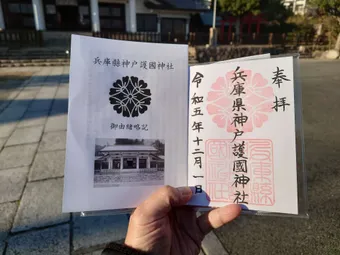 兵庫縣神戸護國神社
御由緒略記
奉拝
兵庫県神戸護國神社
令和五年十二月一日